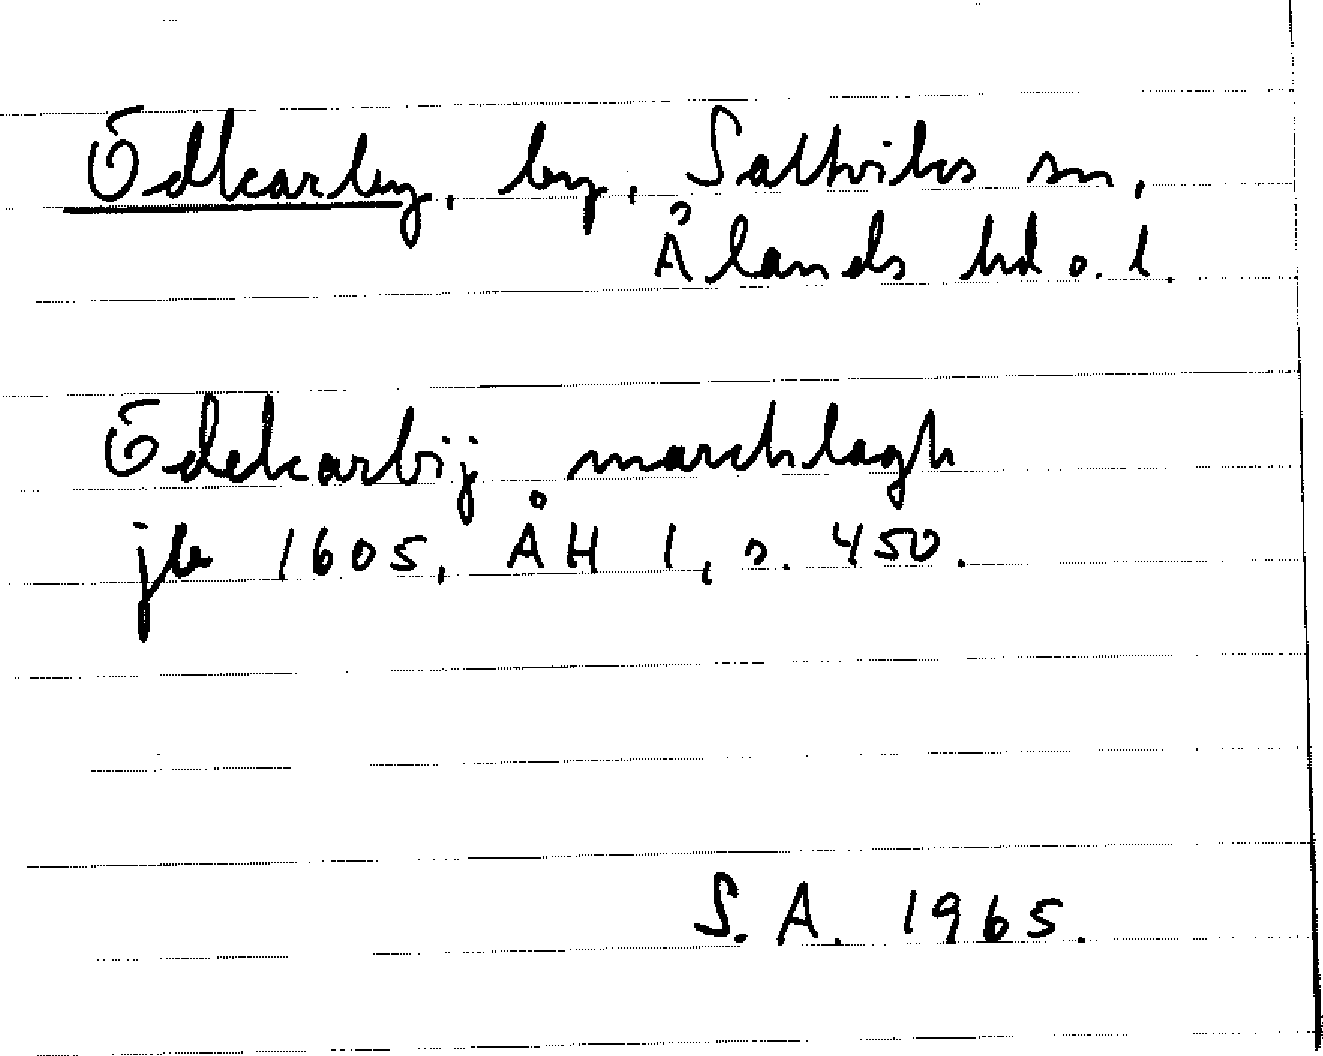 Ödkarby, by, Saltviks sn,
Ålands hd o. l.
Ödekarbij marchlagh
jb 1605, ÅH 1, s. 450.
S. A. 1965.